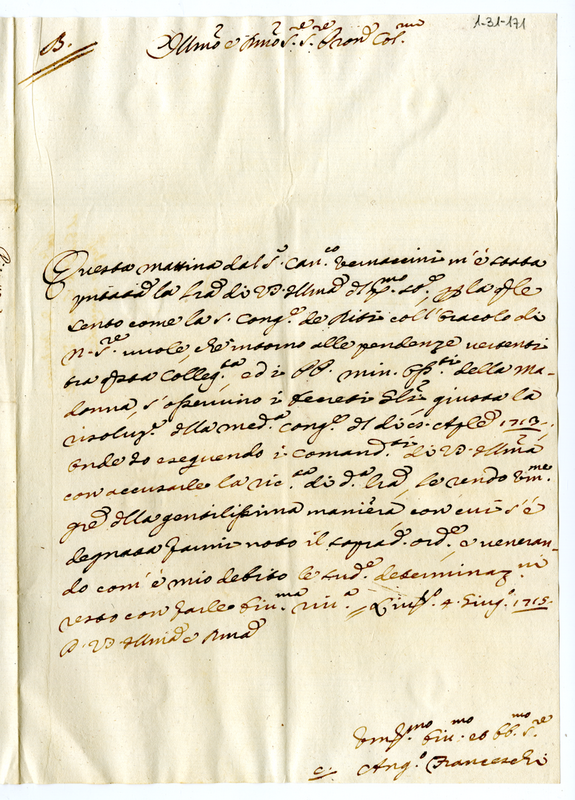 1-31-171
B.
Illmo e Rmo Sr. Sr. Pron Colmo
Questa mattina dal Sr. Canco Bernaccini m'è stata
la Lra di V.S. Illma del pmo
sento come la S. Congne de Riti coll'oracolo di
N. Sre vuole, che intorno alle pendenze vertenti
tra qsta Collegta, ed i PP. min. della Ma-
donna, s'osservino i Decreti giusta la
risoluzne della meda Congne del dì 5. Aple 1713.
onde Io eseguendo i Comandti di V.S. Illma
con accusarle la ricta di da Lra, le rendo
gre della gentilissima maniera con cui s'è
degnata farmi noto il soprado orde e veneran-
do com'è mio debito le sude determinazni
resto con farle riva Livo 4. Giugo 1715.
D. V.S. Illma e Rma
Sre
C. Ango Franceschi